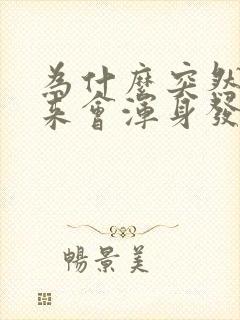 為什麼突然
來會渾身發
暢景美